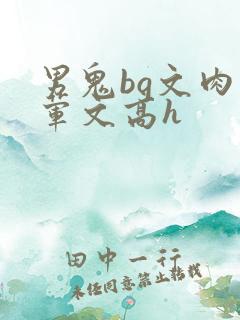 男鬼bg文肉
军文高h
田中一行
未经同意禁止转载